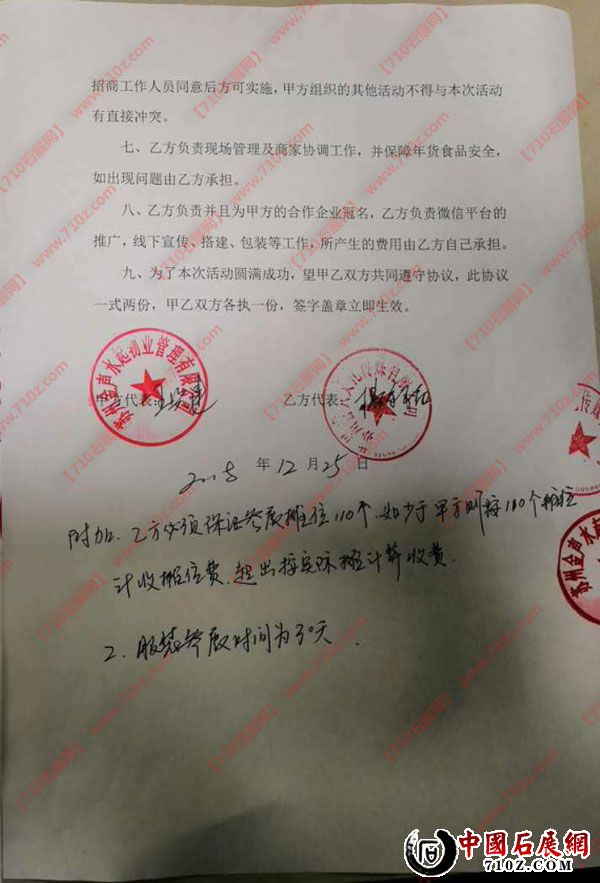 招商工作人员同意后方可实施，甲方组织的其他活动不得与本次活动
有直接冲突。
七、乙方负责现场管理及商家协调工作，并保障年货食品安全，
如出现问题由乙方承担。
八、乙方负责并且为甲方的合作企业冠名，乙方负责微信平台的
推广，线下宣传、搭建、包装等工作，所产生的费用由乙方自己承担。
九、为了本次活动圆满成功，望甲乙双方共同遵守协议，此协议
一式两份，甲乙双方各执一份，签字盖章立即生效。
苏州金声水起物业管理有限公司
甲方代表：
乙方代表
年12月25日
附加、乙方必须保证参展摊位110个，如少于甲方则按110个摊位
计收摊位费，超出按实际摊计算收费.
2. 服装参展时间为30天.
苏州金声水起
【710石展网】
www.710z.com
中國石展網
710Z.COM